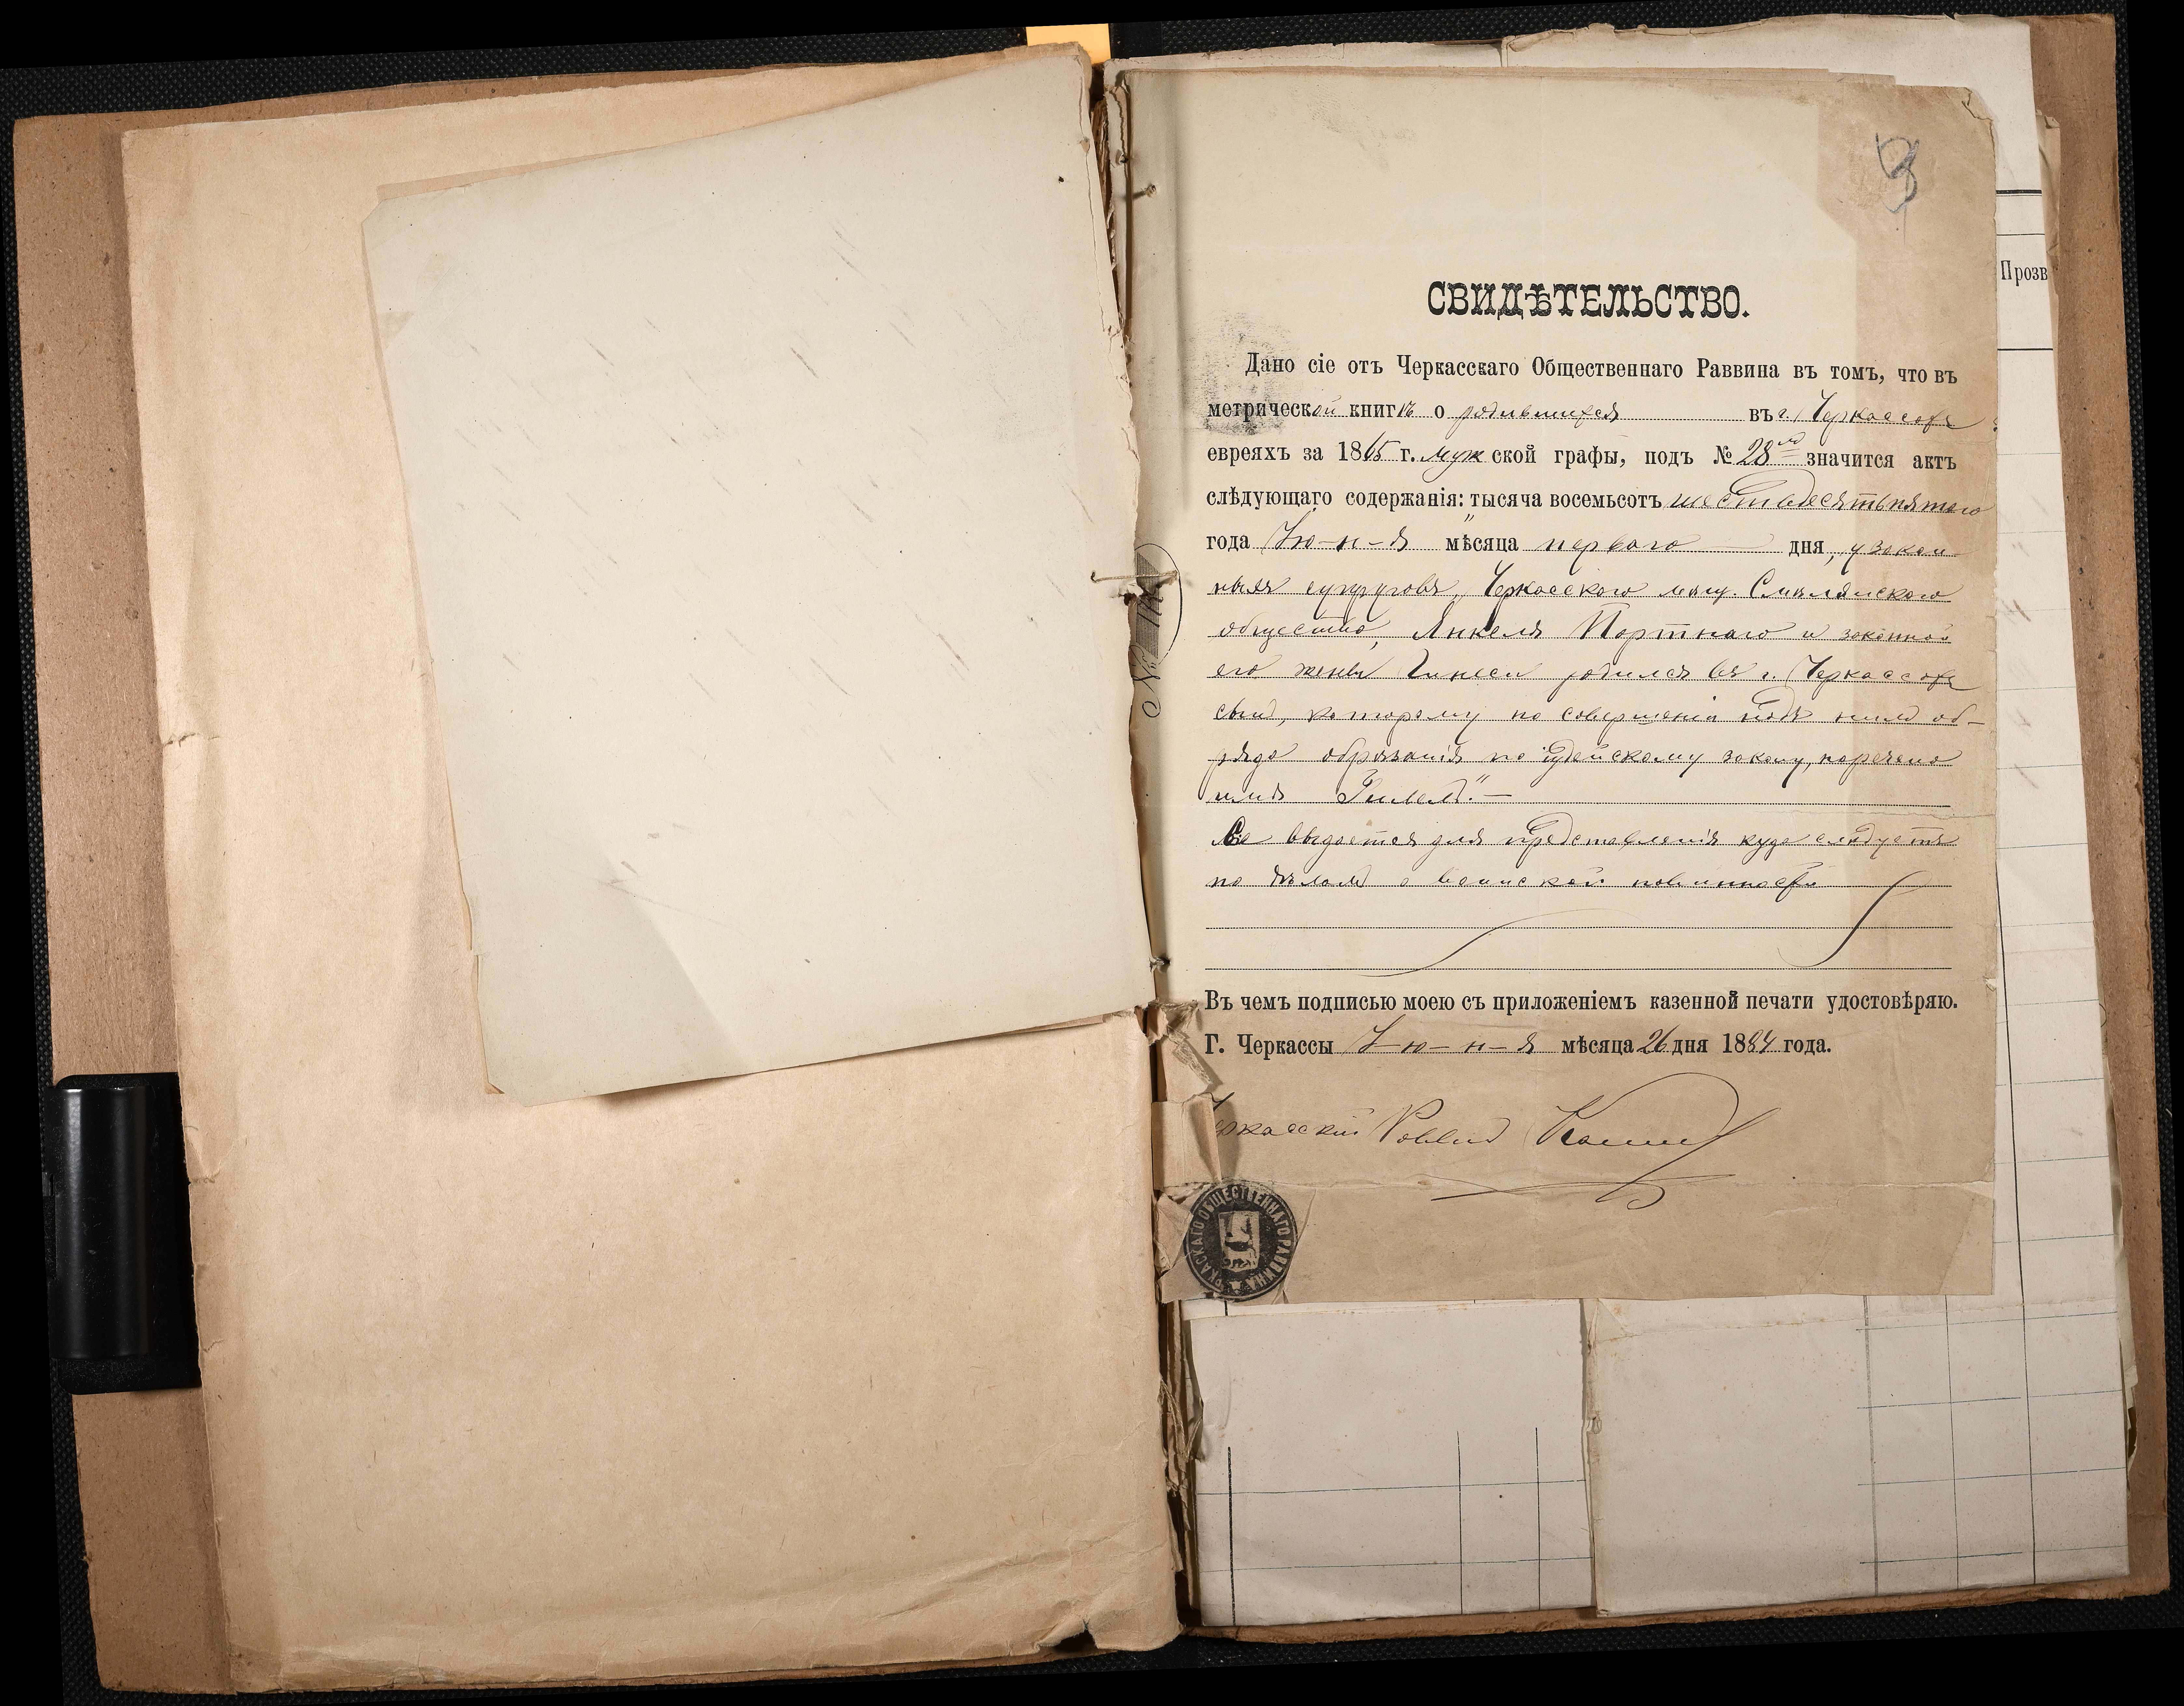 3
Прозв
СВИДѢТЕЛЬСТВО.
Дано сіе отъ Черкасскаго Общественнаго Раввина въ томъ, что въ
метрической книгѣ о родившихся въ г. Черкассахъ
евреяхъ за 1865 г. мужской графы, подъ № 28мъ значится актъ
слѣдующаго содержанія: тысяча восемьсотъ шестьдесятъ пятаго
года Ію-н-я мѣсяца перваго дня, у закон-
ныхъ супруговъ, Черкасскаго мѣщ. Смѣлянскаго
общества, Янкеля Портнаго и законной
его жены Гинеси родился въ г. Черкассахъ
сынъ, которому по совершеніи надъ нимъ об-
ряда обрѣзанія по іудейскому закону, наречено
имя
выдается для представленія куда слѣдуетъ
по дѣламъ о воинской повинности
Въ чемъ подписью моею съ приложеніемъ казенной печати удостовѣряю.
Г. Черкассы І-ю-н-я мѣсяца 26 дня 1884 года.
Черкасскій Раввинъ
РКАСКАГО ОБЩЕСТВЕННАГО РАВВИНА